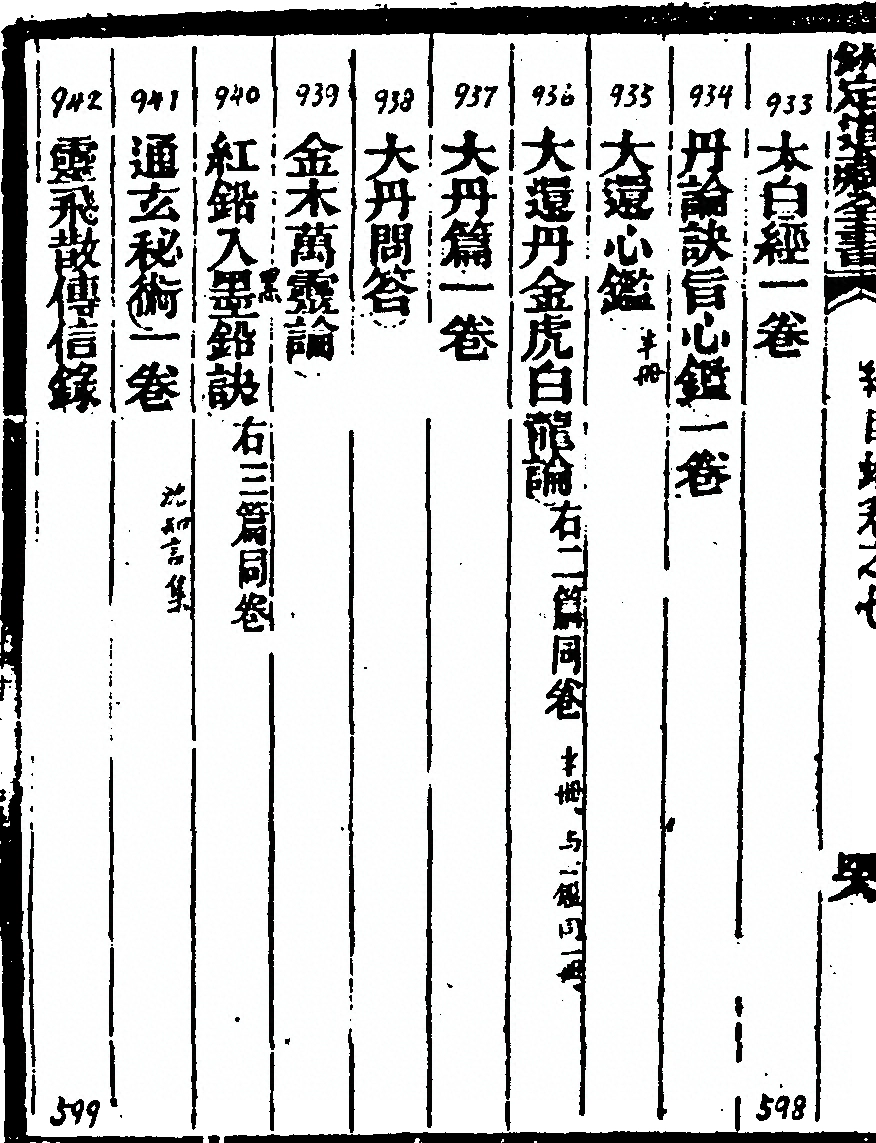 欽定道藏全書
933
太白經一卷
598
934
丹論訣旨心鑑一卷
935
大還心鑑 半冊
936
大還丹金虎白龍論 右二篇同卷 半冊、与心鑑同一冊
937
大丹篇一卷
938
大丹問答
939
金木萬靈論
940
紅鉛入墨鉛訣 右三篇同卷
黑
941
通玄秘術一卷 沈知言集
942
靈飛散傳信錄
599